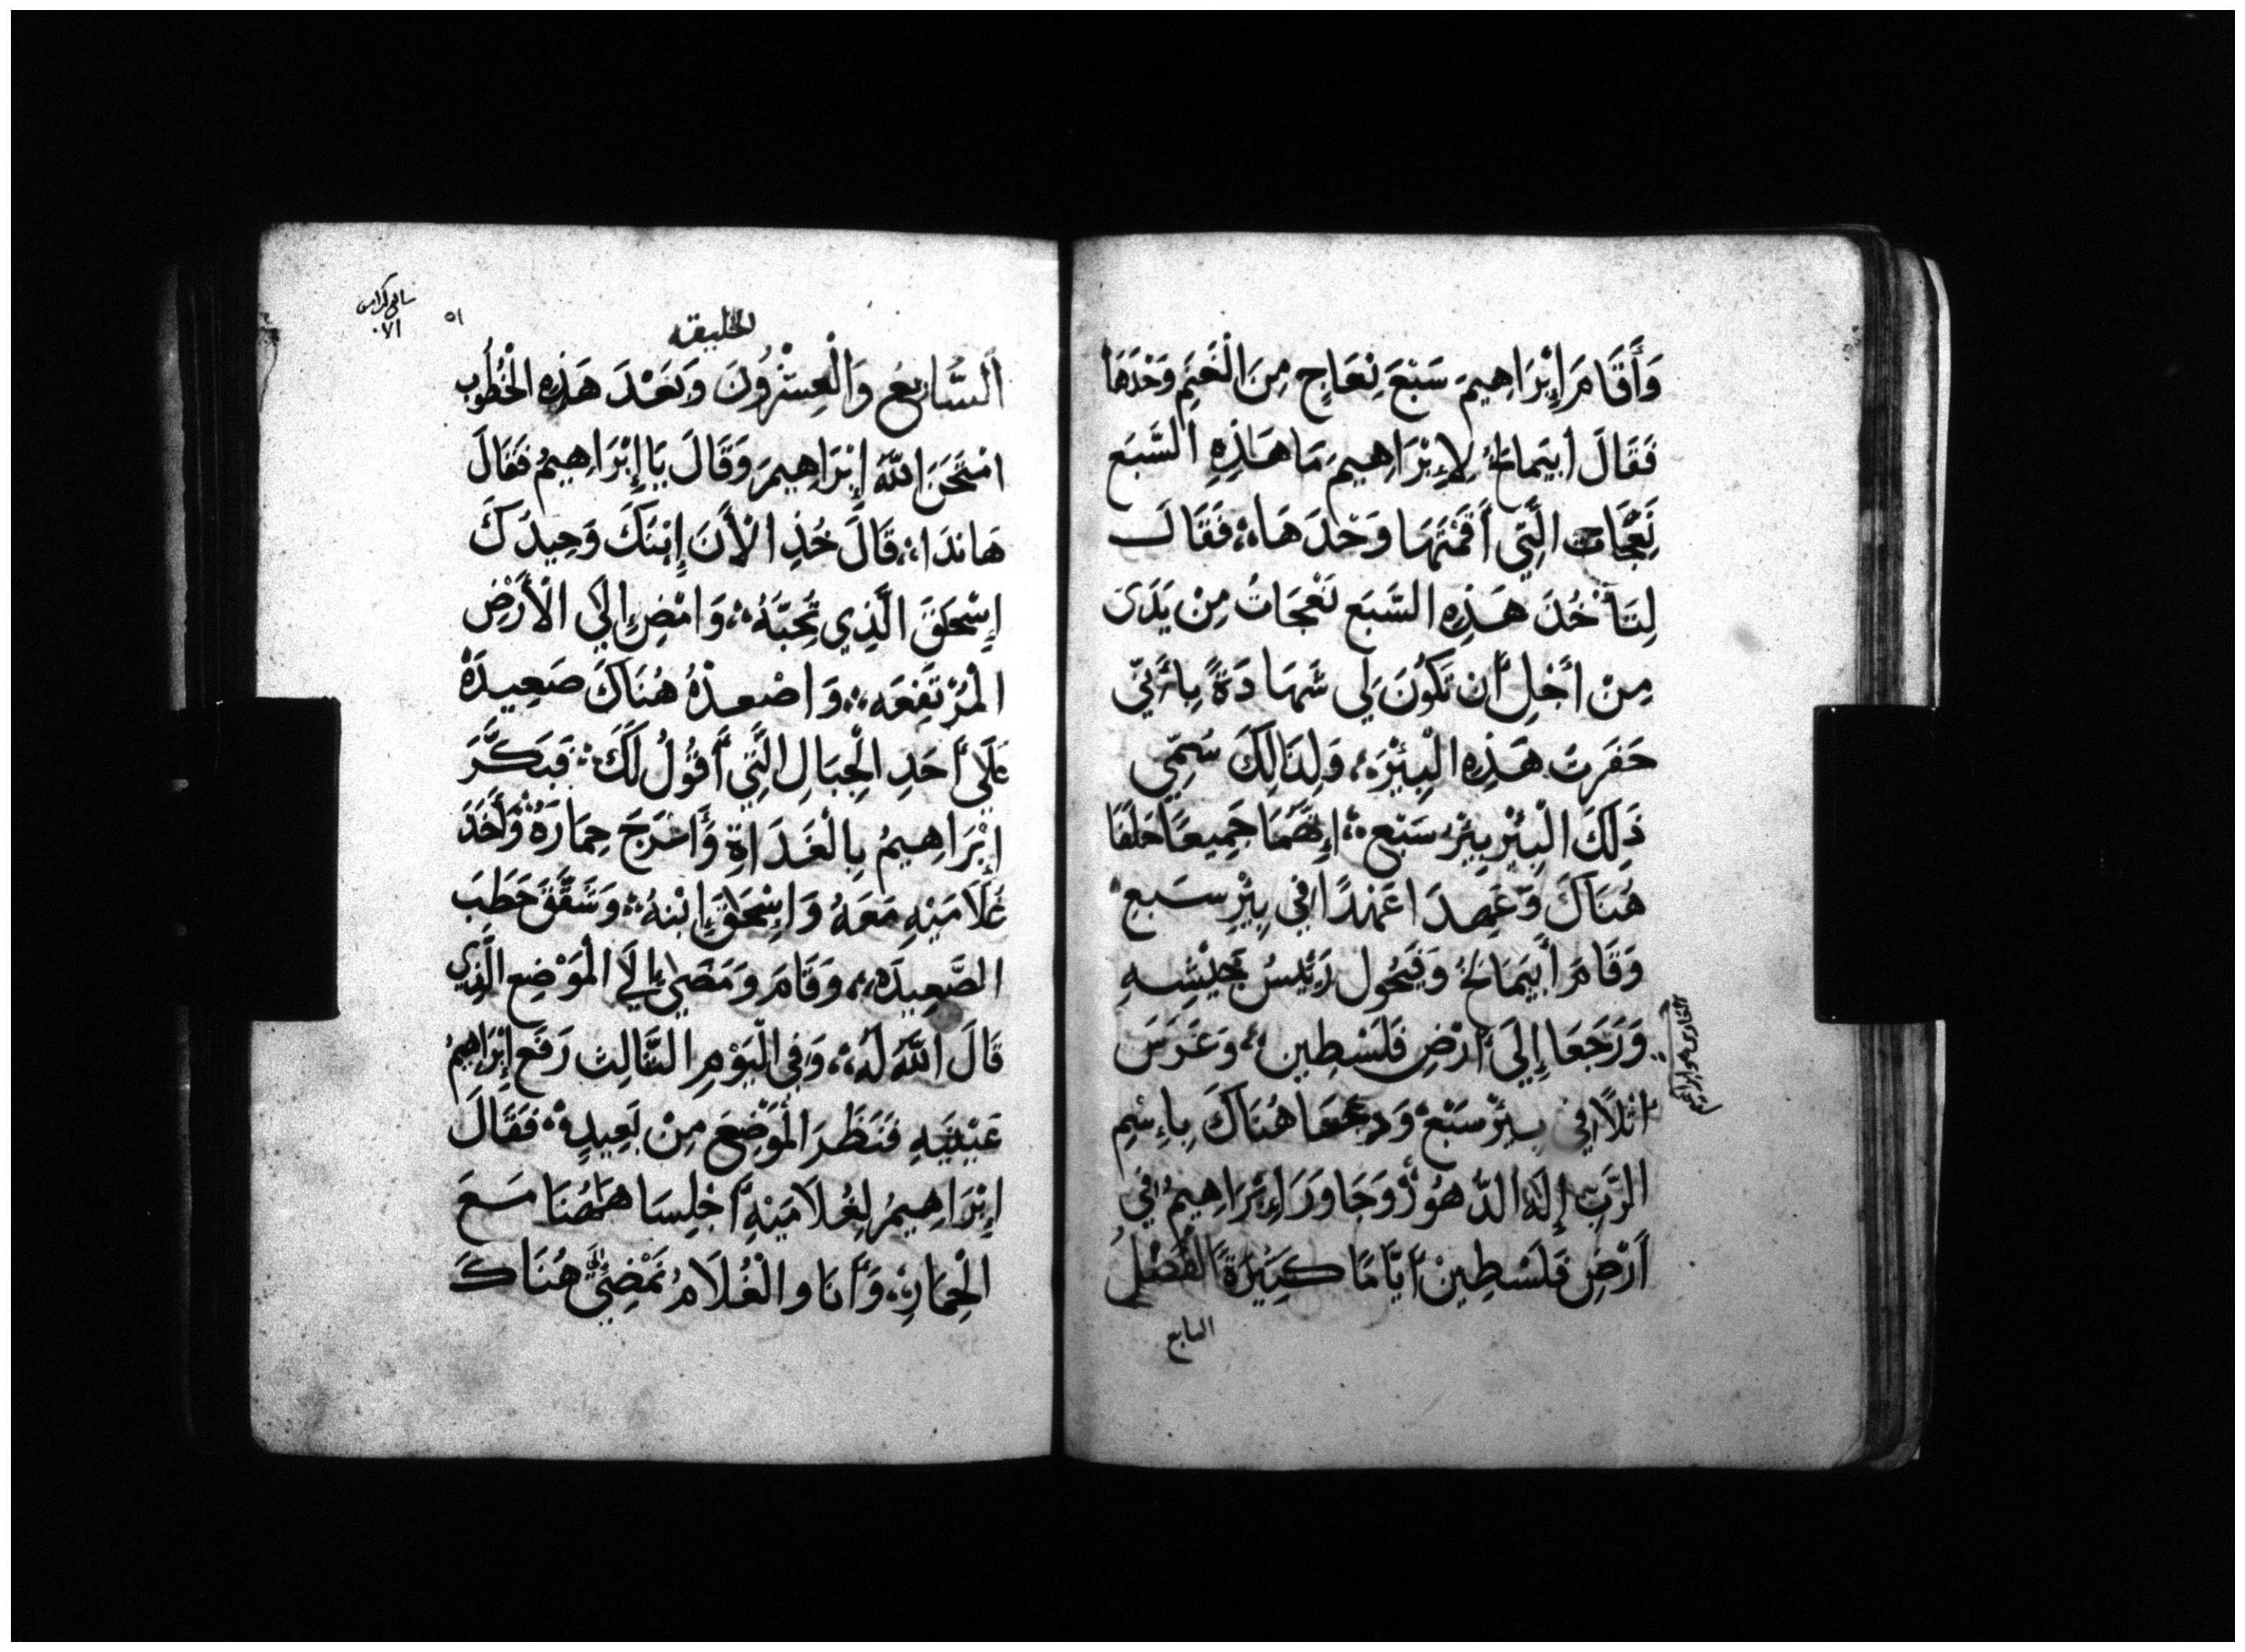 وَأَقَامَ إِبْرَاهِيمَ سَبْعَ نِعَاجٍ مِنَ الْغَنَمِ وَحْدَهَا
فَقَالَ أَبيَمالخُ لِإِبْرَاهِيمَ مَا هَذِهِ السَّبَع
نَعْجَات الَّتِي أَقَمْتَهَا وَحْدَهَا، فَقَالَ
لِتَأْخُذَ هَذِهِ السَّبَع نَعْجَاتُ مِنْ يَدَي
مِنْ أَجْلِ أَن تَكُونَ لِي شَهَادَةً بِأَنِّي
حَفَرتَ هَذِهِ الْبِئْرَ، وَلِذَالِكَ سُمِّي
ذَلِكَ الْبِئْر بِيْرَ سَبْع، إِنَّهُمَا جَمِيعًا حَلَفَا
هُنَاكَ وَعَهِدَا عَهْدًا فِي بِيْرِ سَبعِ
وَقَامَ أَبِيمَالخُ وَفِيَحُول رَئِيسُ جَيْشِهِ
وَرَجَعَا إِلَى أَرْضِ فَلَسْطِين، وَغَرَسَ
أثلًا فِي بِيْرْ سَبْعْ وَدعا هُنَاكَ بِاسْمِ
الرَّبِّ إِلَهُ الدُّهُوْرْ وَجَاوَرَ إِبْرَاهِيمُ فِي
أَرْضِ فَلَسْطِينْ أَيَّامًا كَبِيْرَةً الْفَصْلُ
السابع
سابع كراس
٧١
٥١
الخليقه
السَّابِعُ وَالْعِشْرُونَ وَبَعْدَ هَذِهِ الْخُطُوبِ
امْتَحَنَ اللَّهُ إِبْرَاهِيمَ وَقَالَ يَا إِبْرَاهِيمُ فَقَالَ
هَانَذَا، قَالَ خُذِ الْأَنَ إِبْنَكَ وَحِيدَكَ
إِسْحَقَ الَّذِي تُحِبَّهُ، وَامْضِ إِلَى الْأَرْضِ
الْمُرْتَفِعَه، وَاصْعدْهُ هُنَاكَ صَعِيدَةْ
عَلَى أَحَدِ الْجِبَالِ الَّتِي أَقُولُ لَكَ، فَبَكَّرَ
إِبْرَاهِيمُ بِالْغَدَاةِ وَأَسْرَجَ حِمَارَهُ وَأَخَذَ
غُلَامَيْهِ مَعَهُ وَإِسْحَقَ إِبْنهُ، وَشَقَّقَ حَطَبَ
الصَّعِيدَه، وَقَامَ وَمَضَى إِلَى الْمَوْضِعِ الَّذِي
قَالَ اللَّهُ لَهُ، وَفِي الْيَوْمِ الثَّالِث رَفَعَ إِبْرَاهِيمُ
عَيْنَيْهِ فَنَظَرَ الْمَوْضِعَ مِنْ بَعِيدٍ، فَقَالَ
إِبْرَاهِيمُ لِغُلَامَيْهِ أَجْلِسَا هَهُنَا مَعَ
الْحِمَارِ، وَأَنَا وَالْغُلَامُ نَمْضِي إلى هُنَاكَ